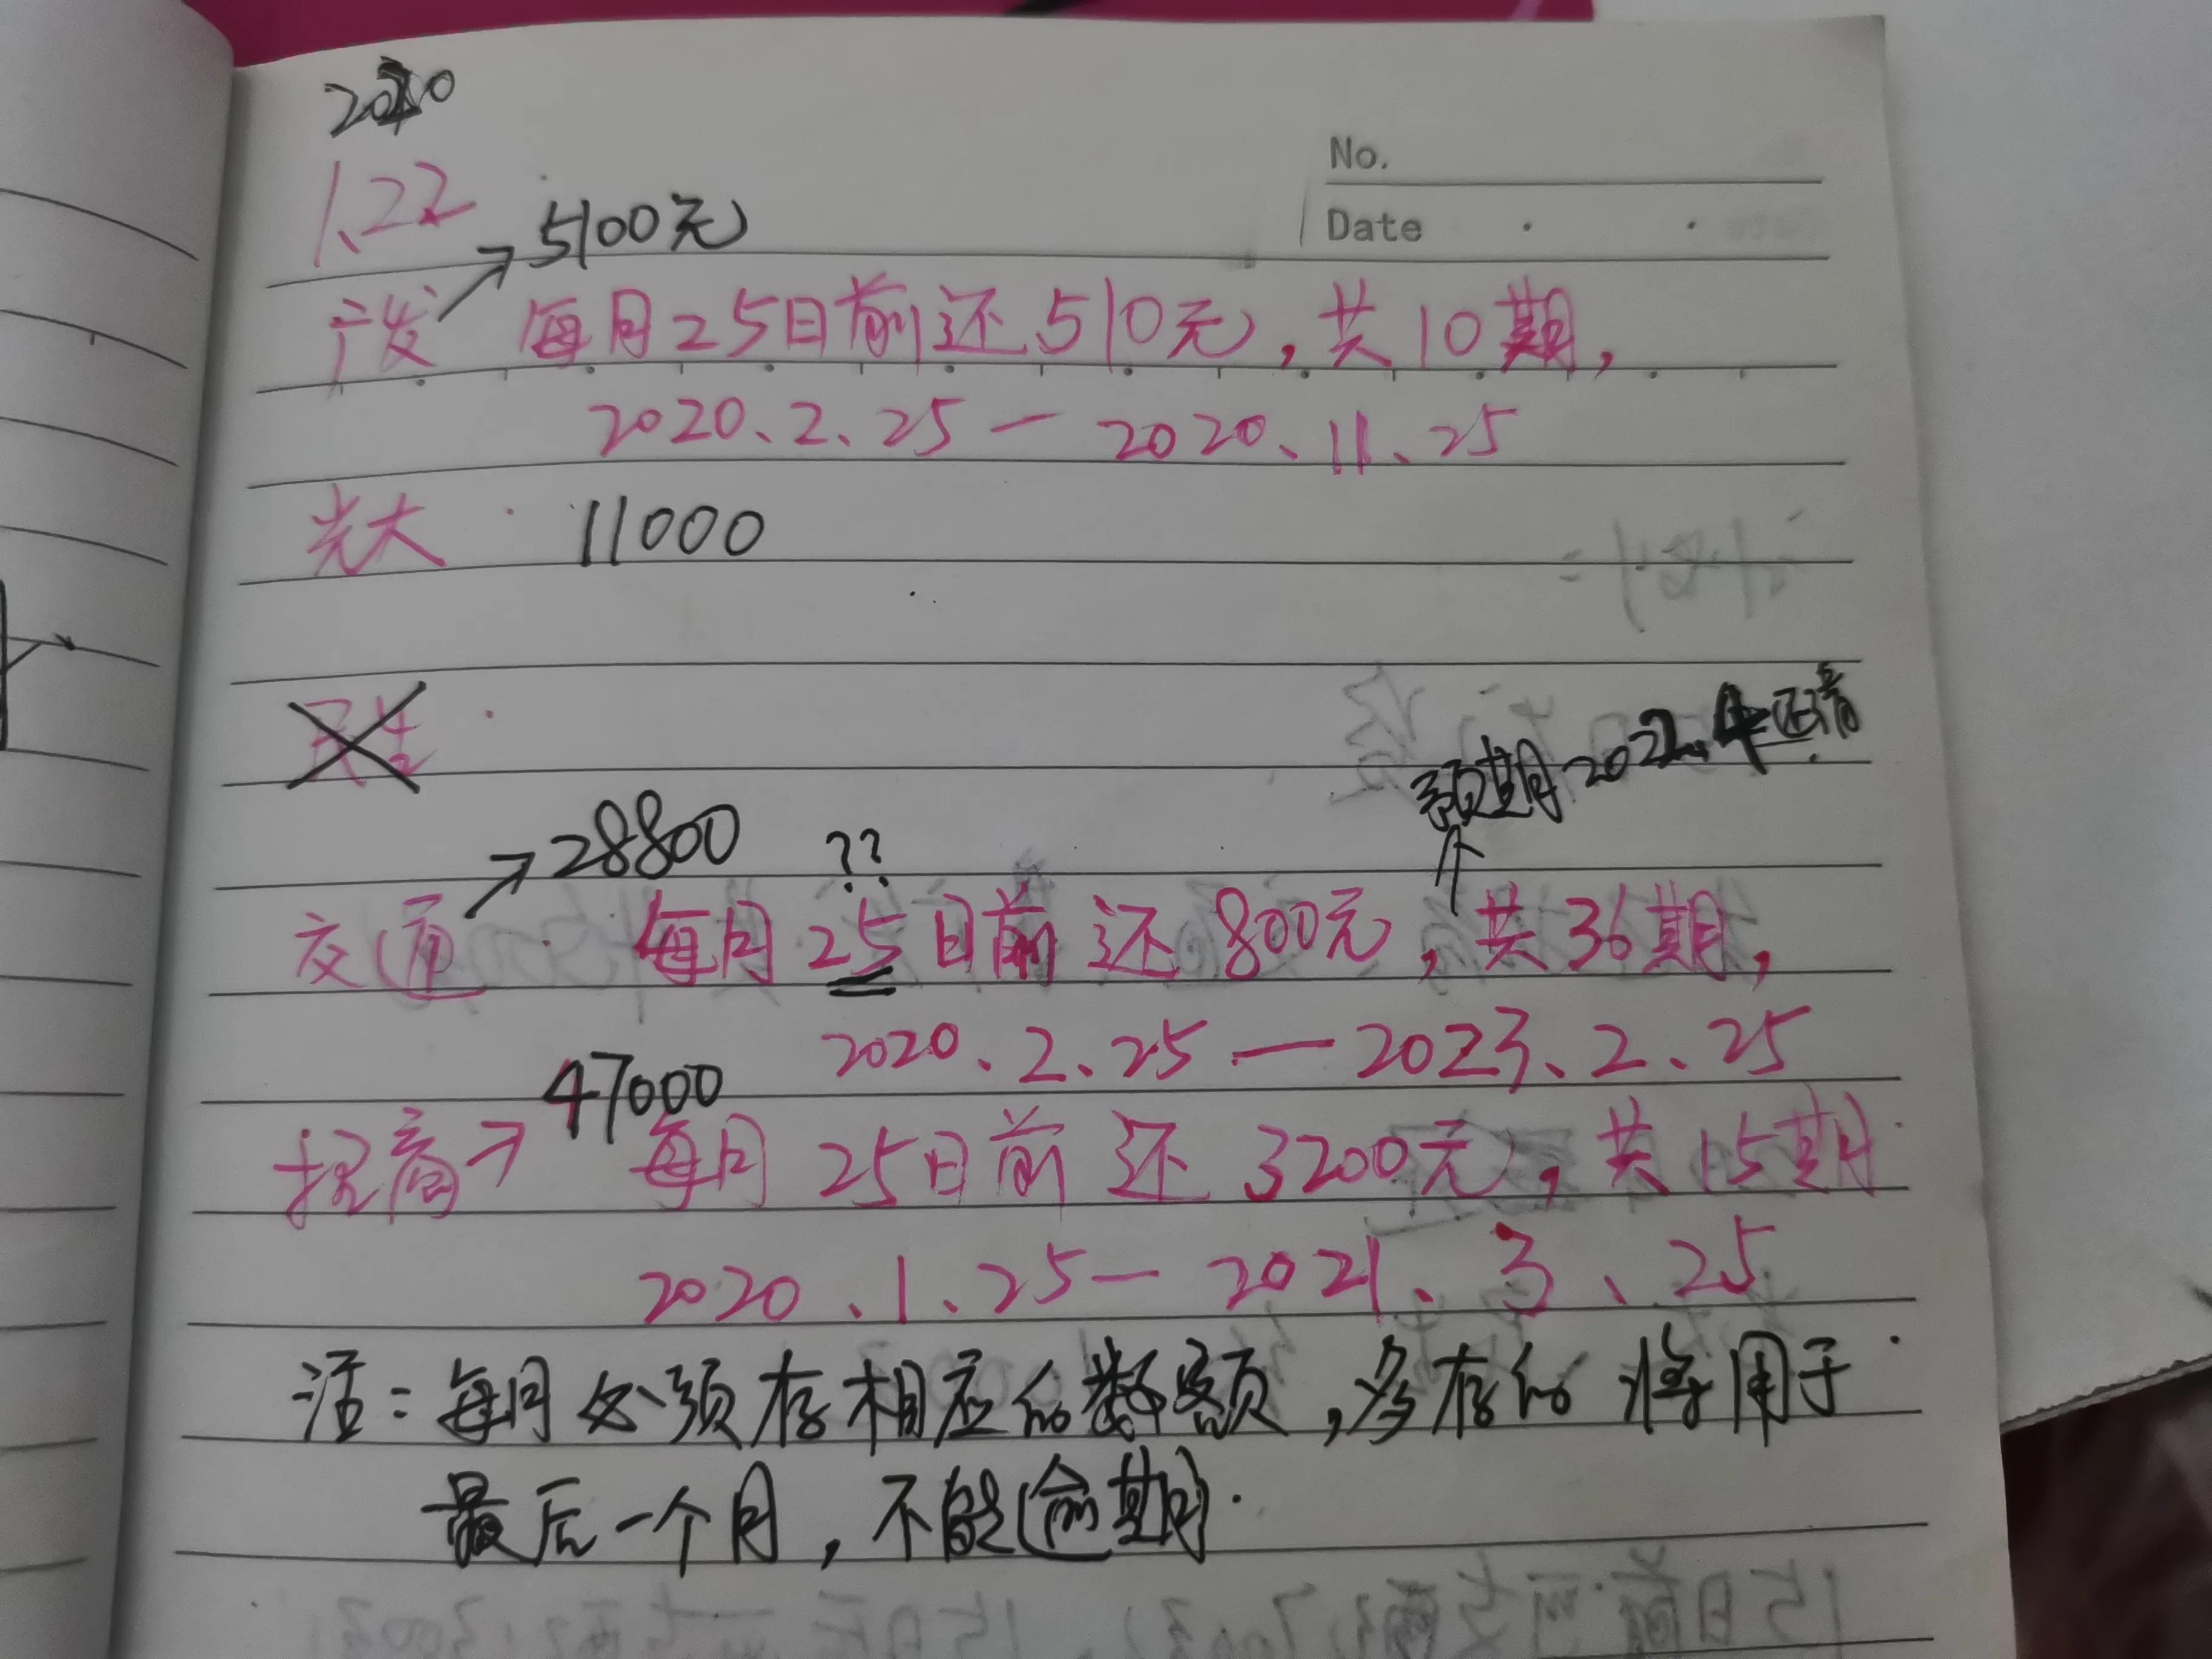 2020
No.
1.22
5100元
Date
广发 每月25日前还510元,共10期,
2020、2、25 — 2020、11、25
光大 11000
民生
预期2022.4还清
28800 ??
交通 每月25日前还800元,共36期,
2020、2、25 — 2023、2、25
47000
招商 每月25日前还3200元,共15期
2020、1、25 — 2021、3、25
注:每月必须存相应的数额,多存的将用于
最后一个月,不能逾期.